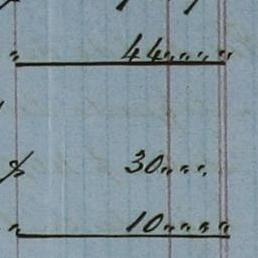 " 44 " " " "
$ 30 " " "
" 10 " " " "